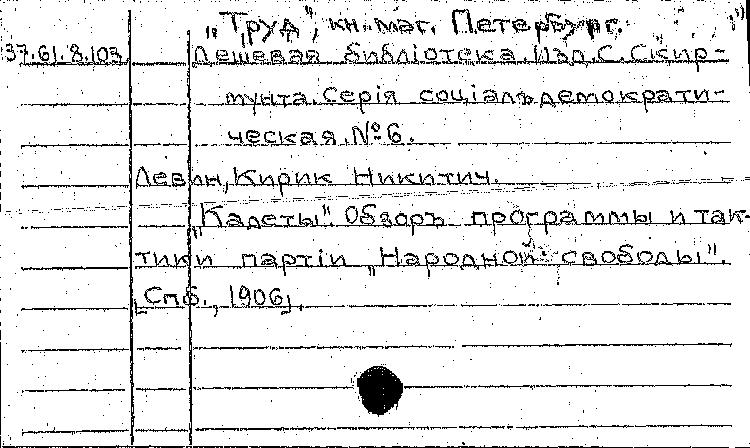 „Труд", кн. маг. Петербург.
37.61.8.103 Дешевая библіотека. Изд. С. Скир-
мунта. Серія соціалъдемократи-
ческая. № 6.
Левин, Кирик Никитич.
„Кадеты". Обзоръ программы и так-
тики партіи „Народной свободы".
[Спб., 1906].